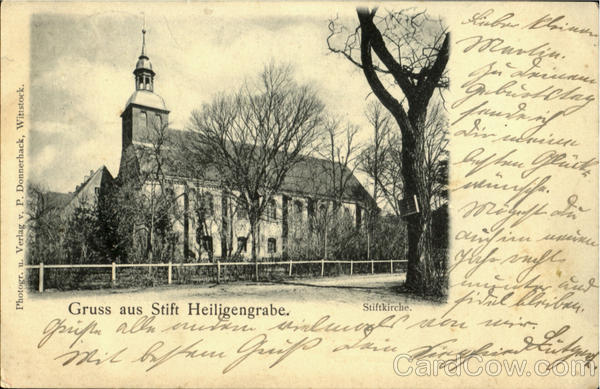 Photogr. u. Verlag v. P. Donnerhack, Wittstock.
Gruss aus Stift Heiligengrabe.
Stiftkirche.
Lieber kleiner
Martin.
Zu Deinem
Geburtstag
sende ich
Dir meinen
besten Glück-
wünsche.
Möchst du
auch im neuen
Jahr recht
munter und
fidel bleiben.
Grüße alle andern vielmals von mir.
Mit bestem Gruß Dein
CardCow.com